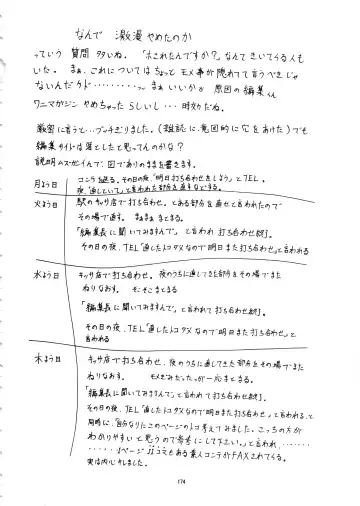 なんで 激漫やめたのか
っていう質問多いね。「ホされたんですか?」なんてきいてくる人も
いた。まぁ、これについてはちょっとモメ事が隠れてて言うべきじゃ
ないんだケド・・・・・・・・・・まぁいいか 原因の編集くん
ワニマガジンやめちゃったらしいし・・・時効だね。
厳密に言うと…ブッちぎりました。(雑誌に意図的に穴をあけた)でも
編集サイドは落としたと思ってんのかな?
説明ムズかしいんで、図でありのままを書きます。
月よう日
コンテを送る。その日の夜、「明日打ち合わせをしよう」とTEL。
夜、直しといて」と言われた部分を直すなどする。
火よう日
駅のキッサ店で打ち合わせ。とある部分を直せと言われたので
その場で直す。まぁまぁまとまる。
「編集長に聞いてみますんで」と言われ打ち合わせ終了。
その日の夜、TEL「直したトコダメなので明日また打ち合わせ」と言われる
水よう日
キッサ店で打ち合わせ。夜のうちに直してきた部分をその場でまた
ねりなおす。そこそこまとまる
「編集長に聞いてみますんで」と言われて打ち合わせ終了。
その日の夜、TEL「直したトコダメなので明日また打ち合わせ」と
言われる
木よう日
キッサ店で打ち合わせ、夜のうちに直してきた部分をその場でまた
ねりなおす。モメぎみだったが一応まとまる。
「編集長に聞いてみますんで」と言われ打ち合わせ終了。
その日の夜、TEL「直したトコダメなので明日また打ち合わせ」と言われる、と
同時に、「自分なりにこのページのトコ考えてみました。こっちの方が
わかりやすいと思うので参考にして下さい。」と言われ、・・・・・・・・
・・・・・1ページ コマもある素人コンテがFAXされてくる。
実はムキレました。
174